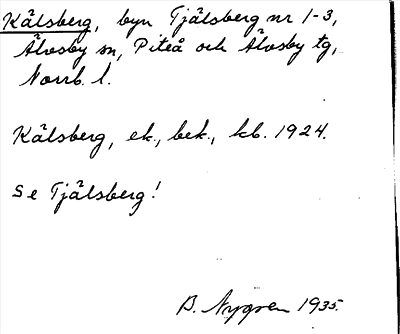 Kälsberg, byn Tjälsberg nr 1-3,
Älvsby sn, Piteå och Älvsby tg,
Norrb. l.
Kälsberg, ek., bek., kb. 1924.
Se Tjälsberg!
B. Nygren 1935.